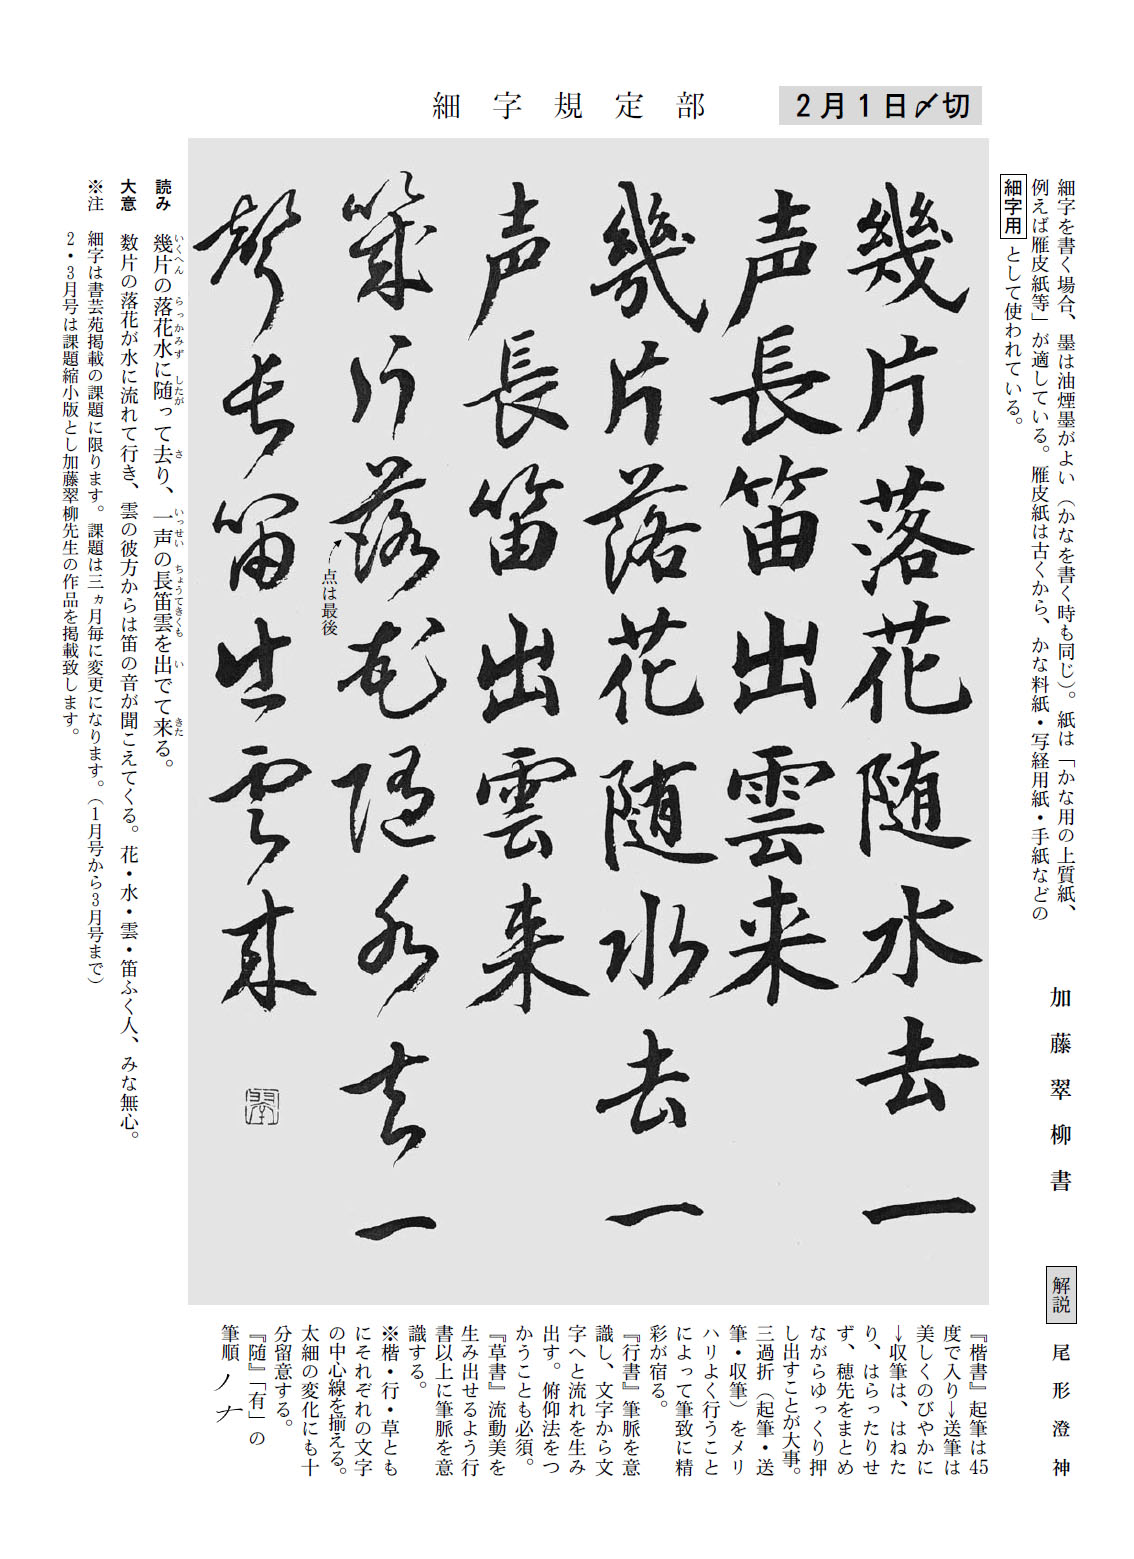 細字規定部
2月1日〆切
細字を書く場合、墨は油煙墨がよい（かなを書く時も同じ）。紙は「かな用の上質紙、
例えば雁皮紙等」が適している。雁皮紙は古くから、かな料紙・写経用紙・手紙などの
細字用 として使われている。
加藤翠柳書
幾片落花随水去一
声長笛出雲来
幾片落花随水去一
声長笛出雲来
幾片落花随水去一
聲長笛出雲来
点は最後
読み 幾片の落花水に随って去り、一声の長笛雲を出でて来る。
いくへん らっかみず したが さ いっせい ちょうてきくも い きた
大意 数片の落花が水に流れて行き、雲の彼方からは笛の音が聞こえてくる。花・水・雲・笛ふく人、みな無心。
※注 細字は書芸苑掲載の課題に限ります。課題は三ヵ月毎に変更になります。（1月号から3月号まで）
2・3月号は課題縮小版とし加藤翠柳先生の作品を掲載致します。
解説 尾形澄神
『楷書』起筆は45
度で入り→送筆は
美しくのびやかに
→収筆は、はねた
り、はらったりせ
ず、穂先をまとめ
ながらゆっくり押
し出すことが大事。
三過折（起筆・送
筆・収筆）をメリ
ハリよく行うこと
によって筆致に精
彩が宿る。
『行書』筆脈を意
識し、文字から文
字へと流れを生み
出す。俯仰法をつ
かうことも必須。
『草書』流動美を
生み出せるよう行
書以上に筆脈を意
識する。
※楷・行・草とも
にそれぞれの文字
の中心線を揃える。
太細の変化にも十
分留意する。
『随』「有」の
筆順 ノ ナ